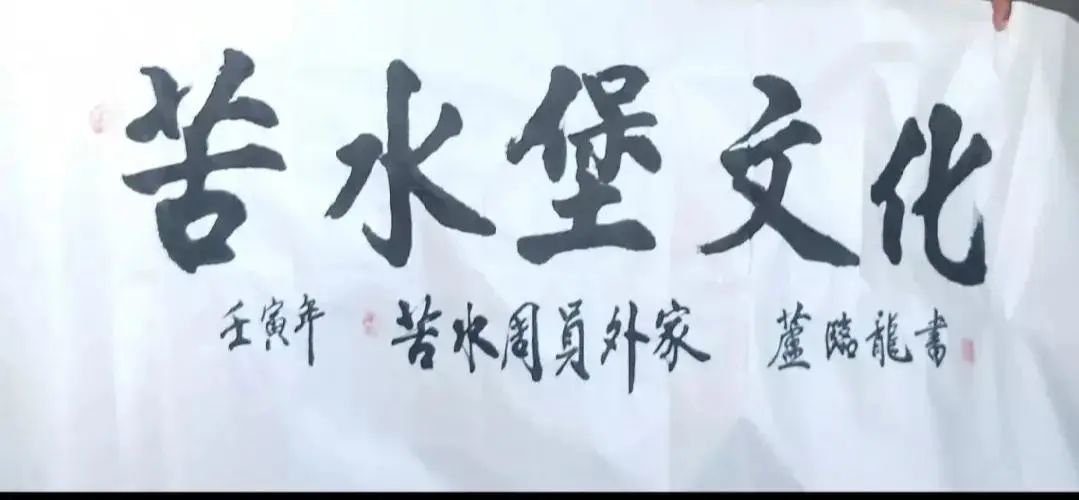 苦水堡文化
壬寅年 苦水周員外家 蘆臨龍書